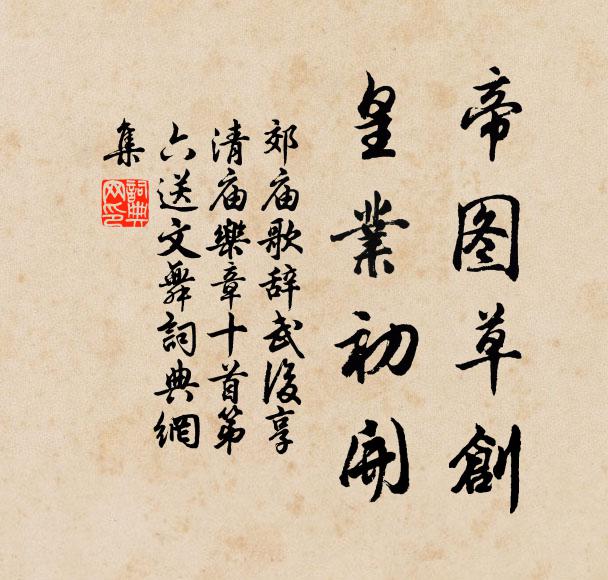 帝图草創
皇業初開
郊庙歌辞武後享
清庙樂章十首第
六送文舞詞典網
集
詞典网印